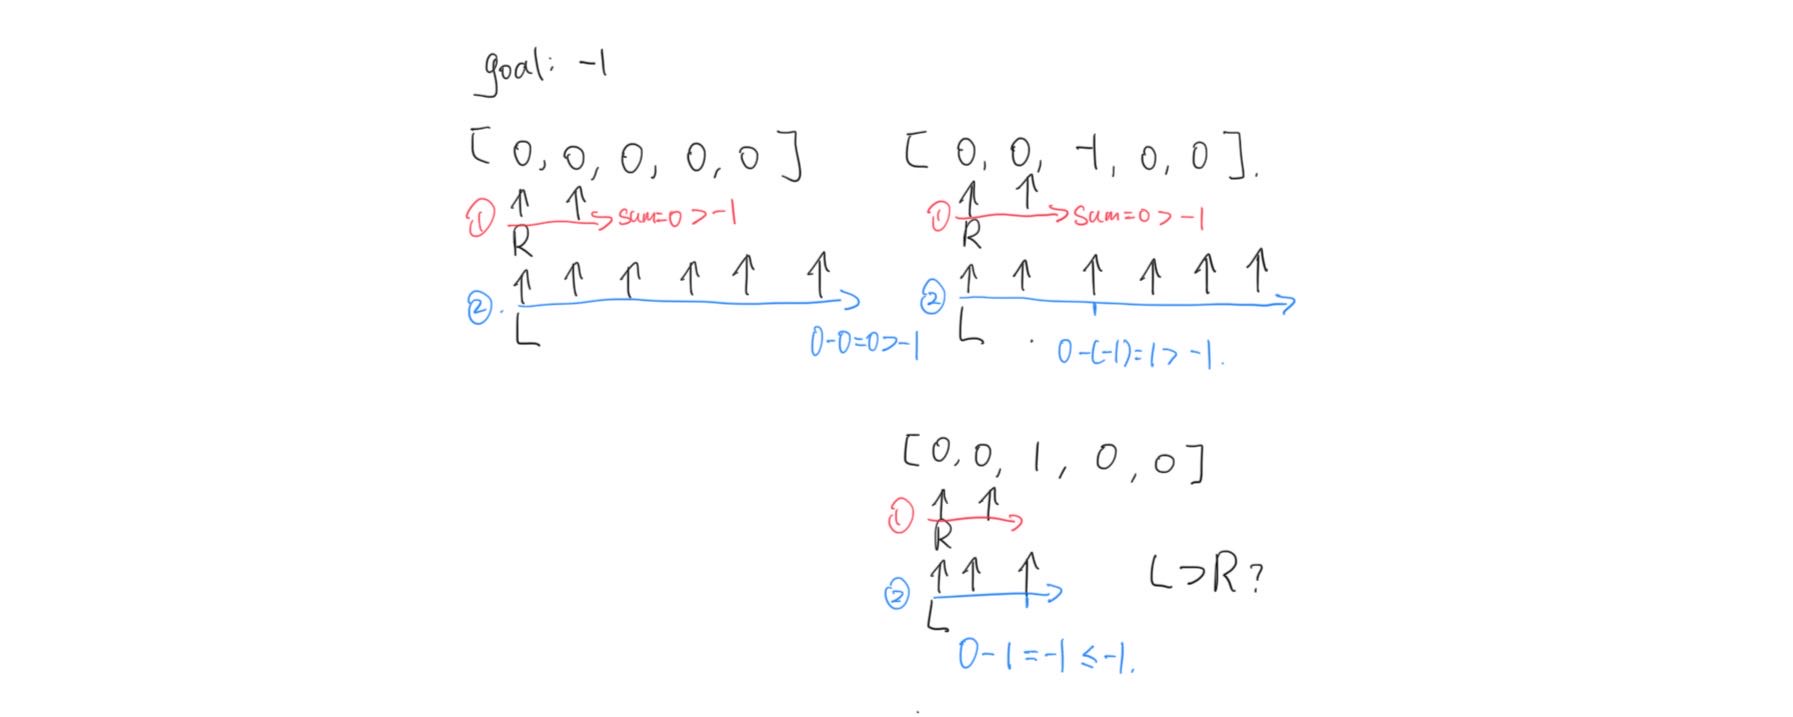 goal: -1
[ 0, 0, 0, 0, 0 ]
① sum=0 > -1
R
②.
L
0-0=0>-1
[ 0, 0, -1, 0, 0 ].
① sum=0 > -1
R
②
L
0-(-1)=1 > -1.
[ 0, 0, 1, 0, 0 ]
①
R
②
L
0-1=-1 ≤ -1.
L>R?